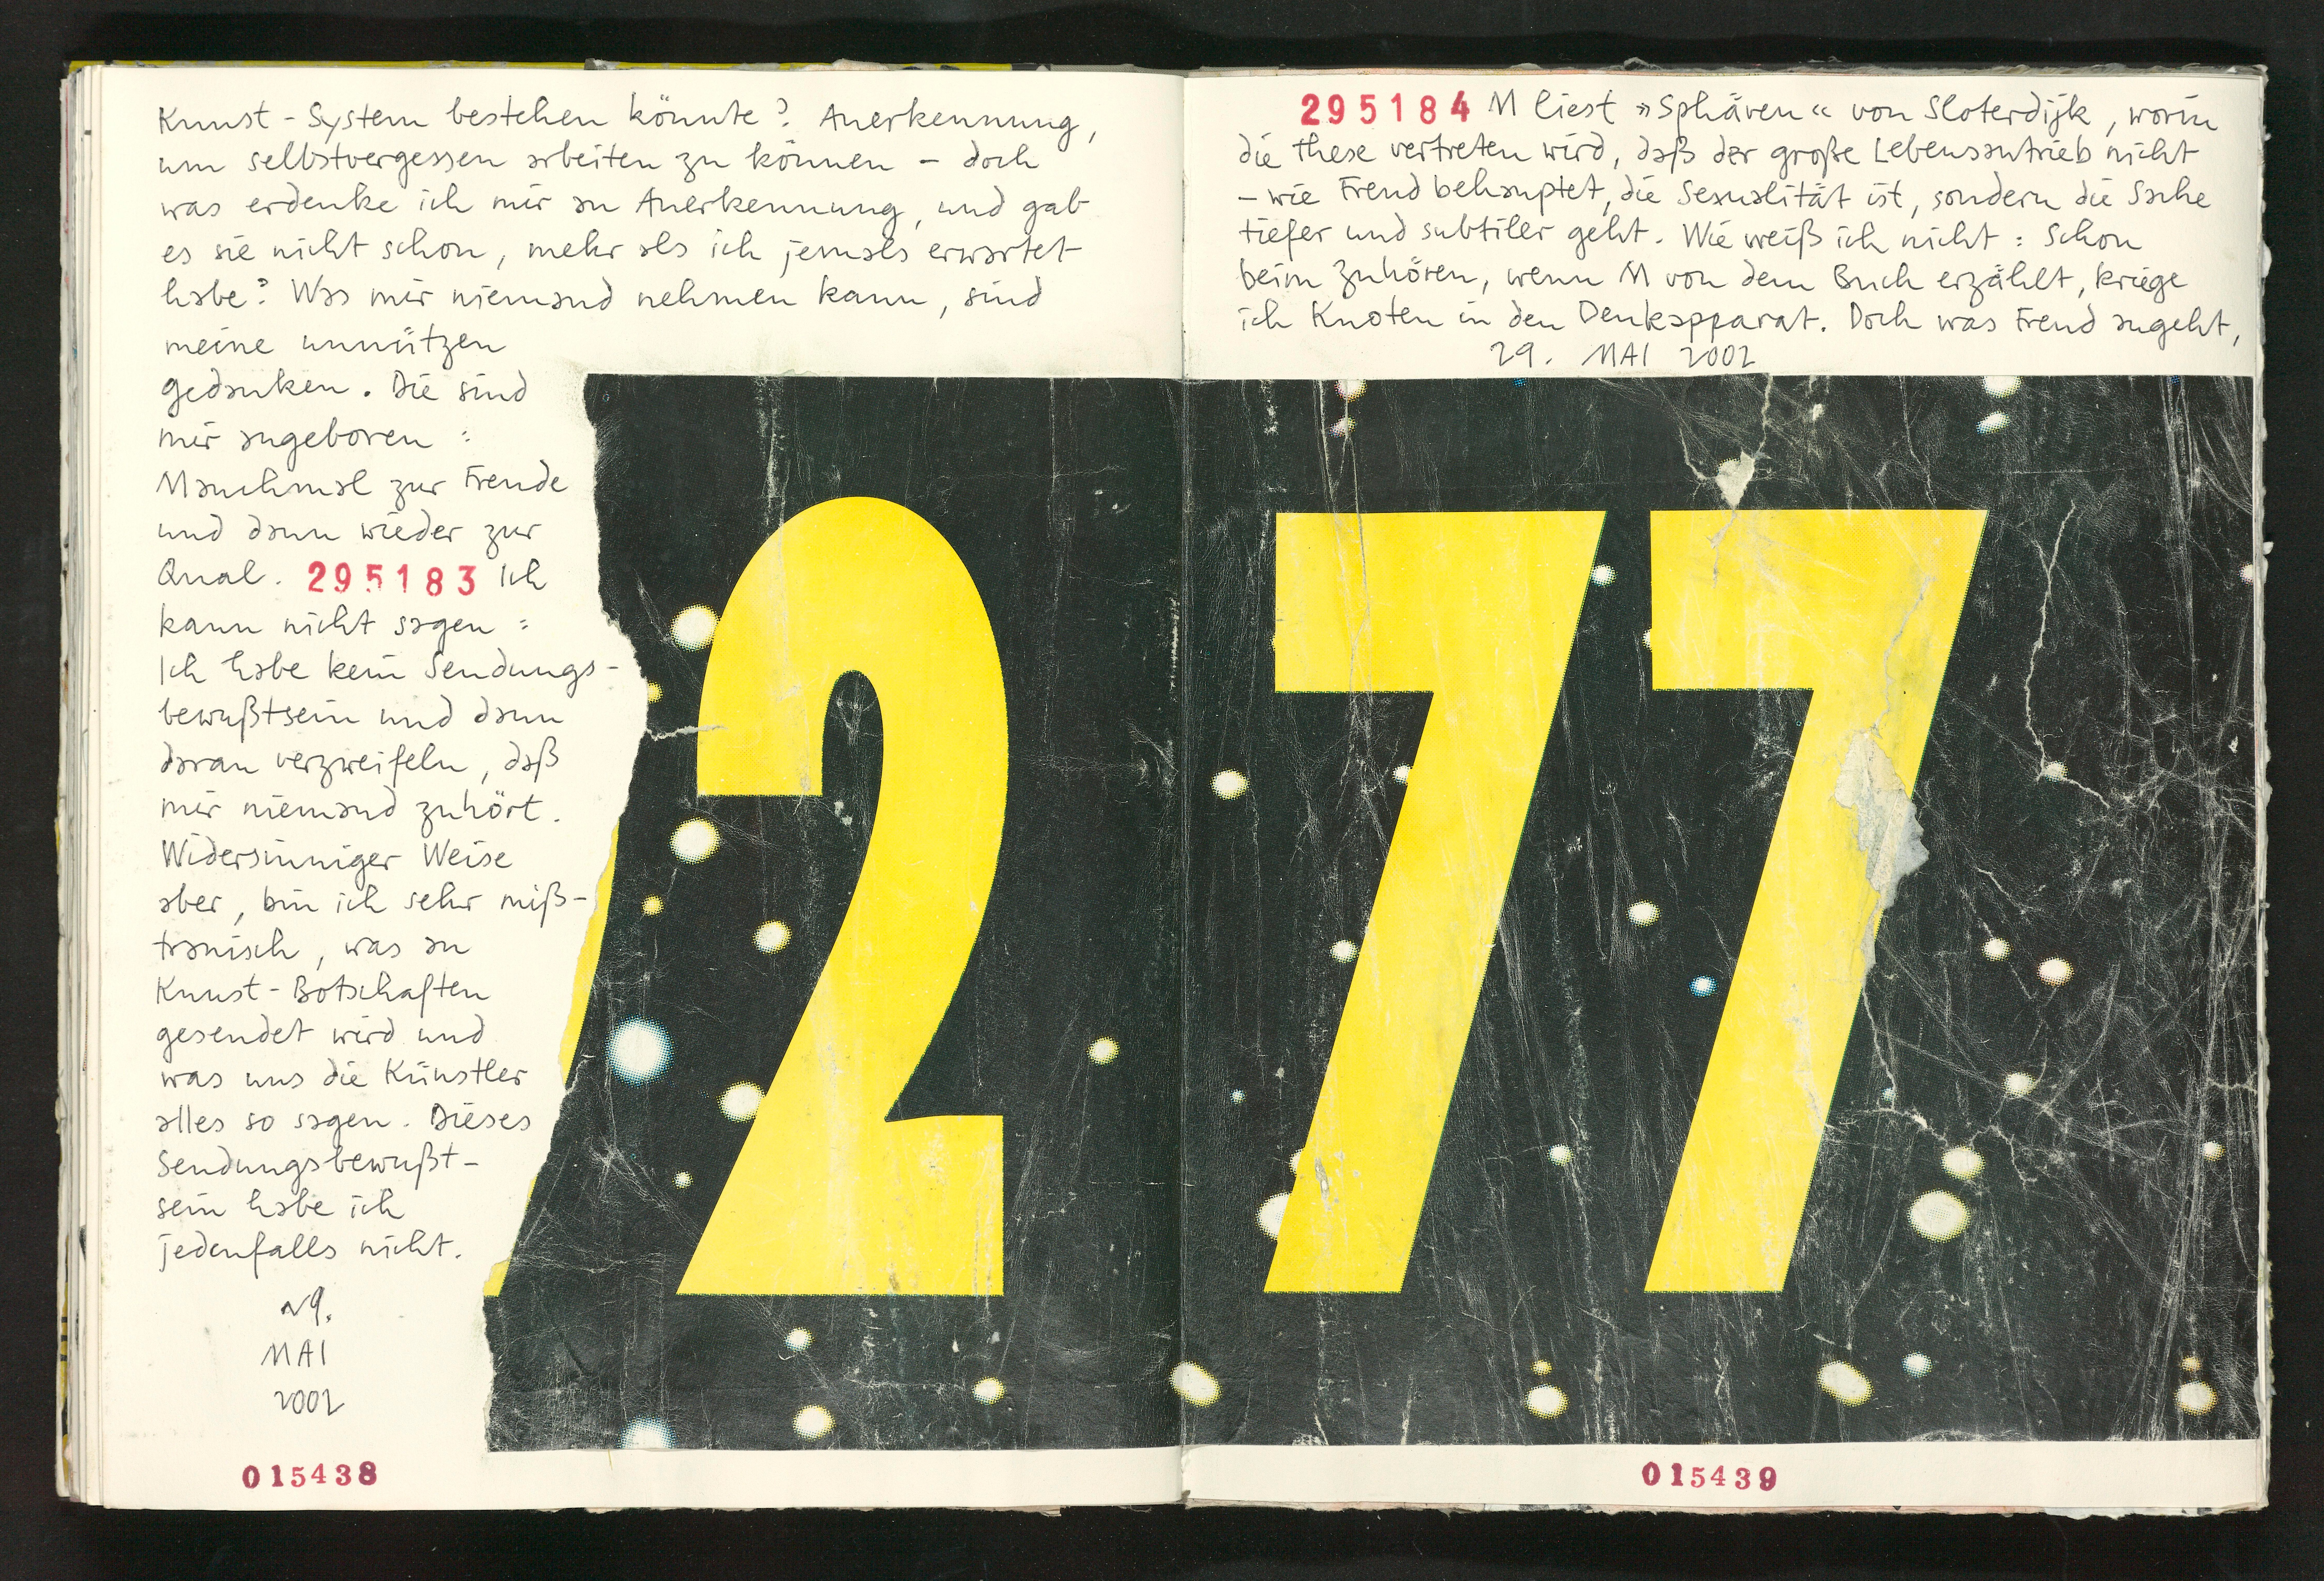 Kunst-System bestehen könnte? Anerkennung,
um selbstvergessen arbeiten zu können – doch
was erdenke ich mir an Anerkennung, und gab
es sie nicht schon, mehr als ich jemals erwartet
habe? Was mir niemand nehmen kann, sind
meine unnützen
gedanken. Die sind
mir angeboren:
Manchmal zur Freude
und dann wieder zur
Qual. 295183 Ich
kann nicht sagen:
Ich habe kein Sendungs-
bewußtsein und dann
daran verzweifeln, daß
mir niemand zuhört.
Widersinniger Weise
aber, bin ich sehr miß-
trauisch, was an
Kunst-Botschaften
gesendet wird und
was uns die Künstler
alles so sagen. Dieses
Sendungsbewußt-
sein habe ich
jedenfalls nicht.
29.
MAI
2002
015438
295184 M liest »Sphären« von Sloterdijk, worin
die These vertreten wird, daß der große Lebensantrieb nicht
– wie Freud behauptet, die Sexualität ist, sondern die Sache
tiefer und subtiler geht. Wie weiß ich nicht: Schon
beim Zuhören, wenn M von dem Buch erzählt, kriege
ich Knoten in den Denkapparat. Doch was Freud angeht,
29. MAI 2002
277
015439